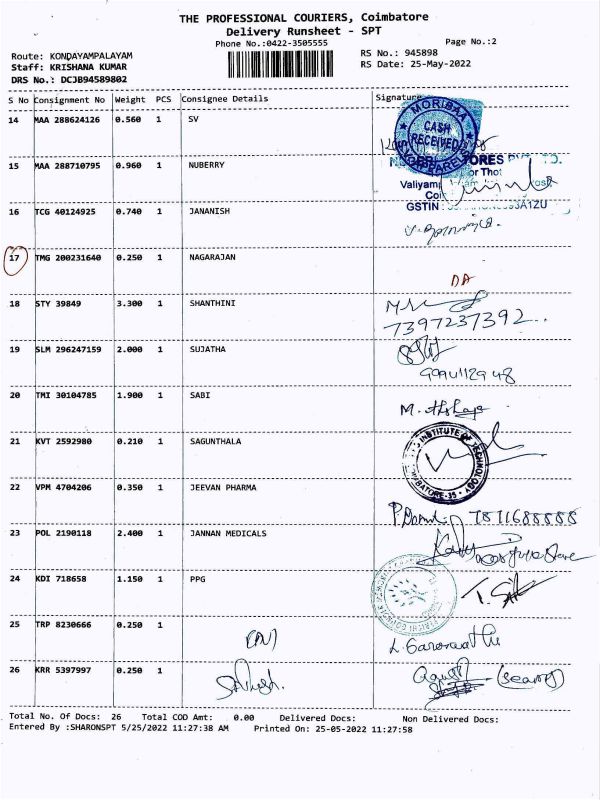 THE PROFESSIONAL COURIERS, Coimbatore
Delivery Runsheet - SPT
Phone No.:0422-3505555
Page No.:2
Route: KONDAYAMPALAYAM
RS No.: 945898
Staff: KRISHANA KUMAR
RS Date: 25-May-2022
DRS No.: DCJB94589802
S No Consignment No Weight PCS Consignee Details Signature
14 MAA 288624126 0.560 1 SV
MORIBAA
CASH
RECEIVED
15 MAA 288710795 0.960 1 NUBERRY
TORES
or Thot
Valiyam
GSTIN
16 TCG 40124925 0.740 1 JANANISH
17 TMG 200231640 0.250 1 NAGARAJAN
DA
18 STY 39849 3.300 1 SHANTHINI
7397237392
19 SLM 296247159 2.000 1 SUJATHA
20 TMI 30104785 1.900 1 SABI
21 KVT 2592980 0.210 1 SAGUNTHALA
INSTITUTE OF TECHNOLOGY
22 VPM 4704206 0.350 1 JEEVAN PHARMA
7811688888
23 POL 2190118 2.400 1 JANNAN MEDICALS
24 KDI 718658 1.150 1 PPG
25 TRP 8230666 0.250 1
26 KRR 5397997 0.250 1
Total No. Of Docs: 26 Total COD Amt: 0.00 Delivered Docs: Non Delivered Docs:
Entered By :SHARONSPT 5/25/2022 11:27:38 AM Printed On: 25-05-2022 11:27:58